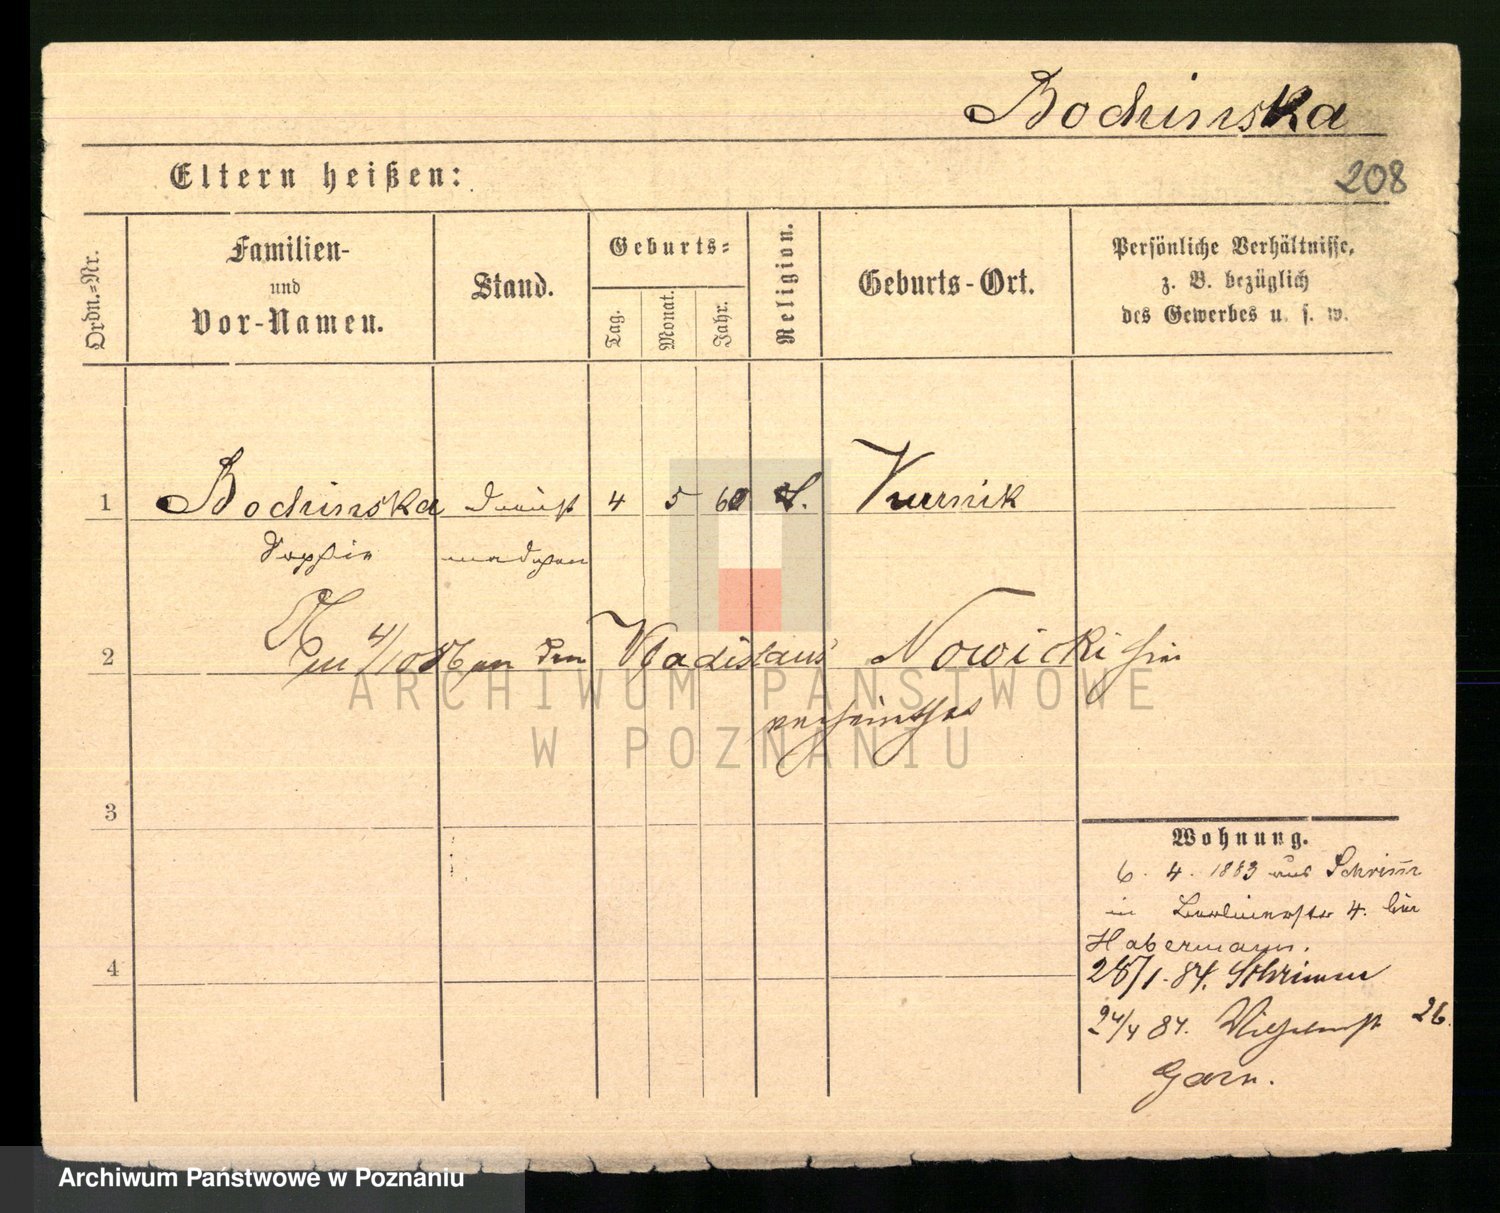 Bochinska
208
Eltern heißen:
Ordn.-Nr.
Familien-
und
Vor-Namen.
Stand.
Geburts-
Tag.
Monat.
Jahr.
Religion.
Geburts-Ort.
Persönliche Verhältnisse,
z. B. bezüglich
des Gewerbes u. s. w.
1 Bochinska Dienst 4 5 60 k. Kurnik
Sophie mädchen
2 Am 4/10 86 an den Vladislaus Nowicki hier
verheirathet
3
Wohnung.
6. 4. 1883 aus Schrimm
in 4. bei
Habermann.
4
28/1. 84. Schrimm
24/4 84. Wilhelmst 26.
Garn.
ARCHIWUM PAŃSTWOWE
W POZNANIU
Archiwum Państwowe w Poznaniu